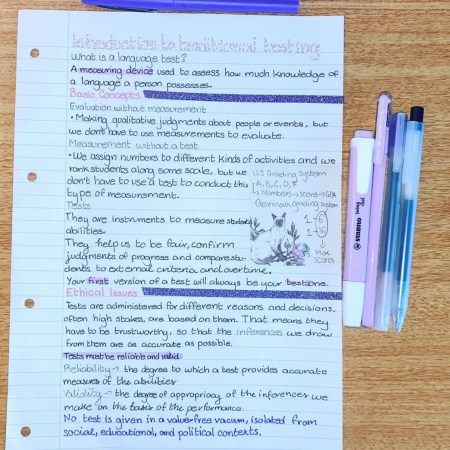 Introduction to traditional testing
What is a language test?
A measuring device used to assess how much knowledge of
a language a person possesses.
Basic Concepts
Evaluation without measurement
• Making qualitative judgments about people or events, but
we don't have to use measurements to evaluate.
Measurement without a test
• We assign numbers to different kinds of activities and we
rank students along some scale, but we
don't have to use a test to conduct this
type of measurement.
U.S Grading System
A, B, C, D, F
Numbers → score → GPA
German grading system
1-6
1-15
Max.
scores
Tests
They are instruments to measure students
abilities.
They help us to be fair, confirm
judgments of progress and compare stu-
dents to external criteria and overtime.
Your first version of a test will always be your best one.
Ethical Issues
Tests are administered for different reasons and decisions,
often high stakes, are based on them. That means they
have to be trustworthy, so that the inferences we draw
from them are as accurate as possible.
Tests must be reliable and valid
Reliability → the degree to which a test provides accurate
measures of the abilities
Validity → the degree of appropriacy of the inferences we
make on the basis of the performance.
No test is given in a value-free vacuum, isolated from
social, educational, and political contexts.
STABILO